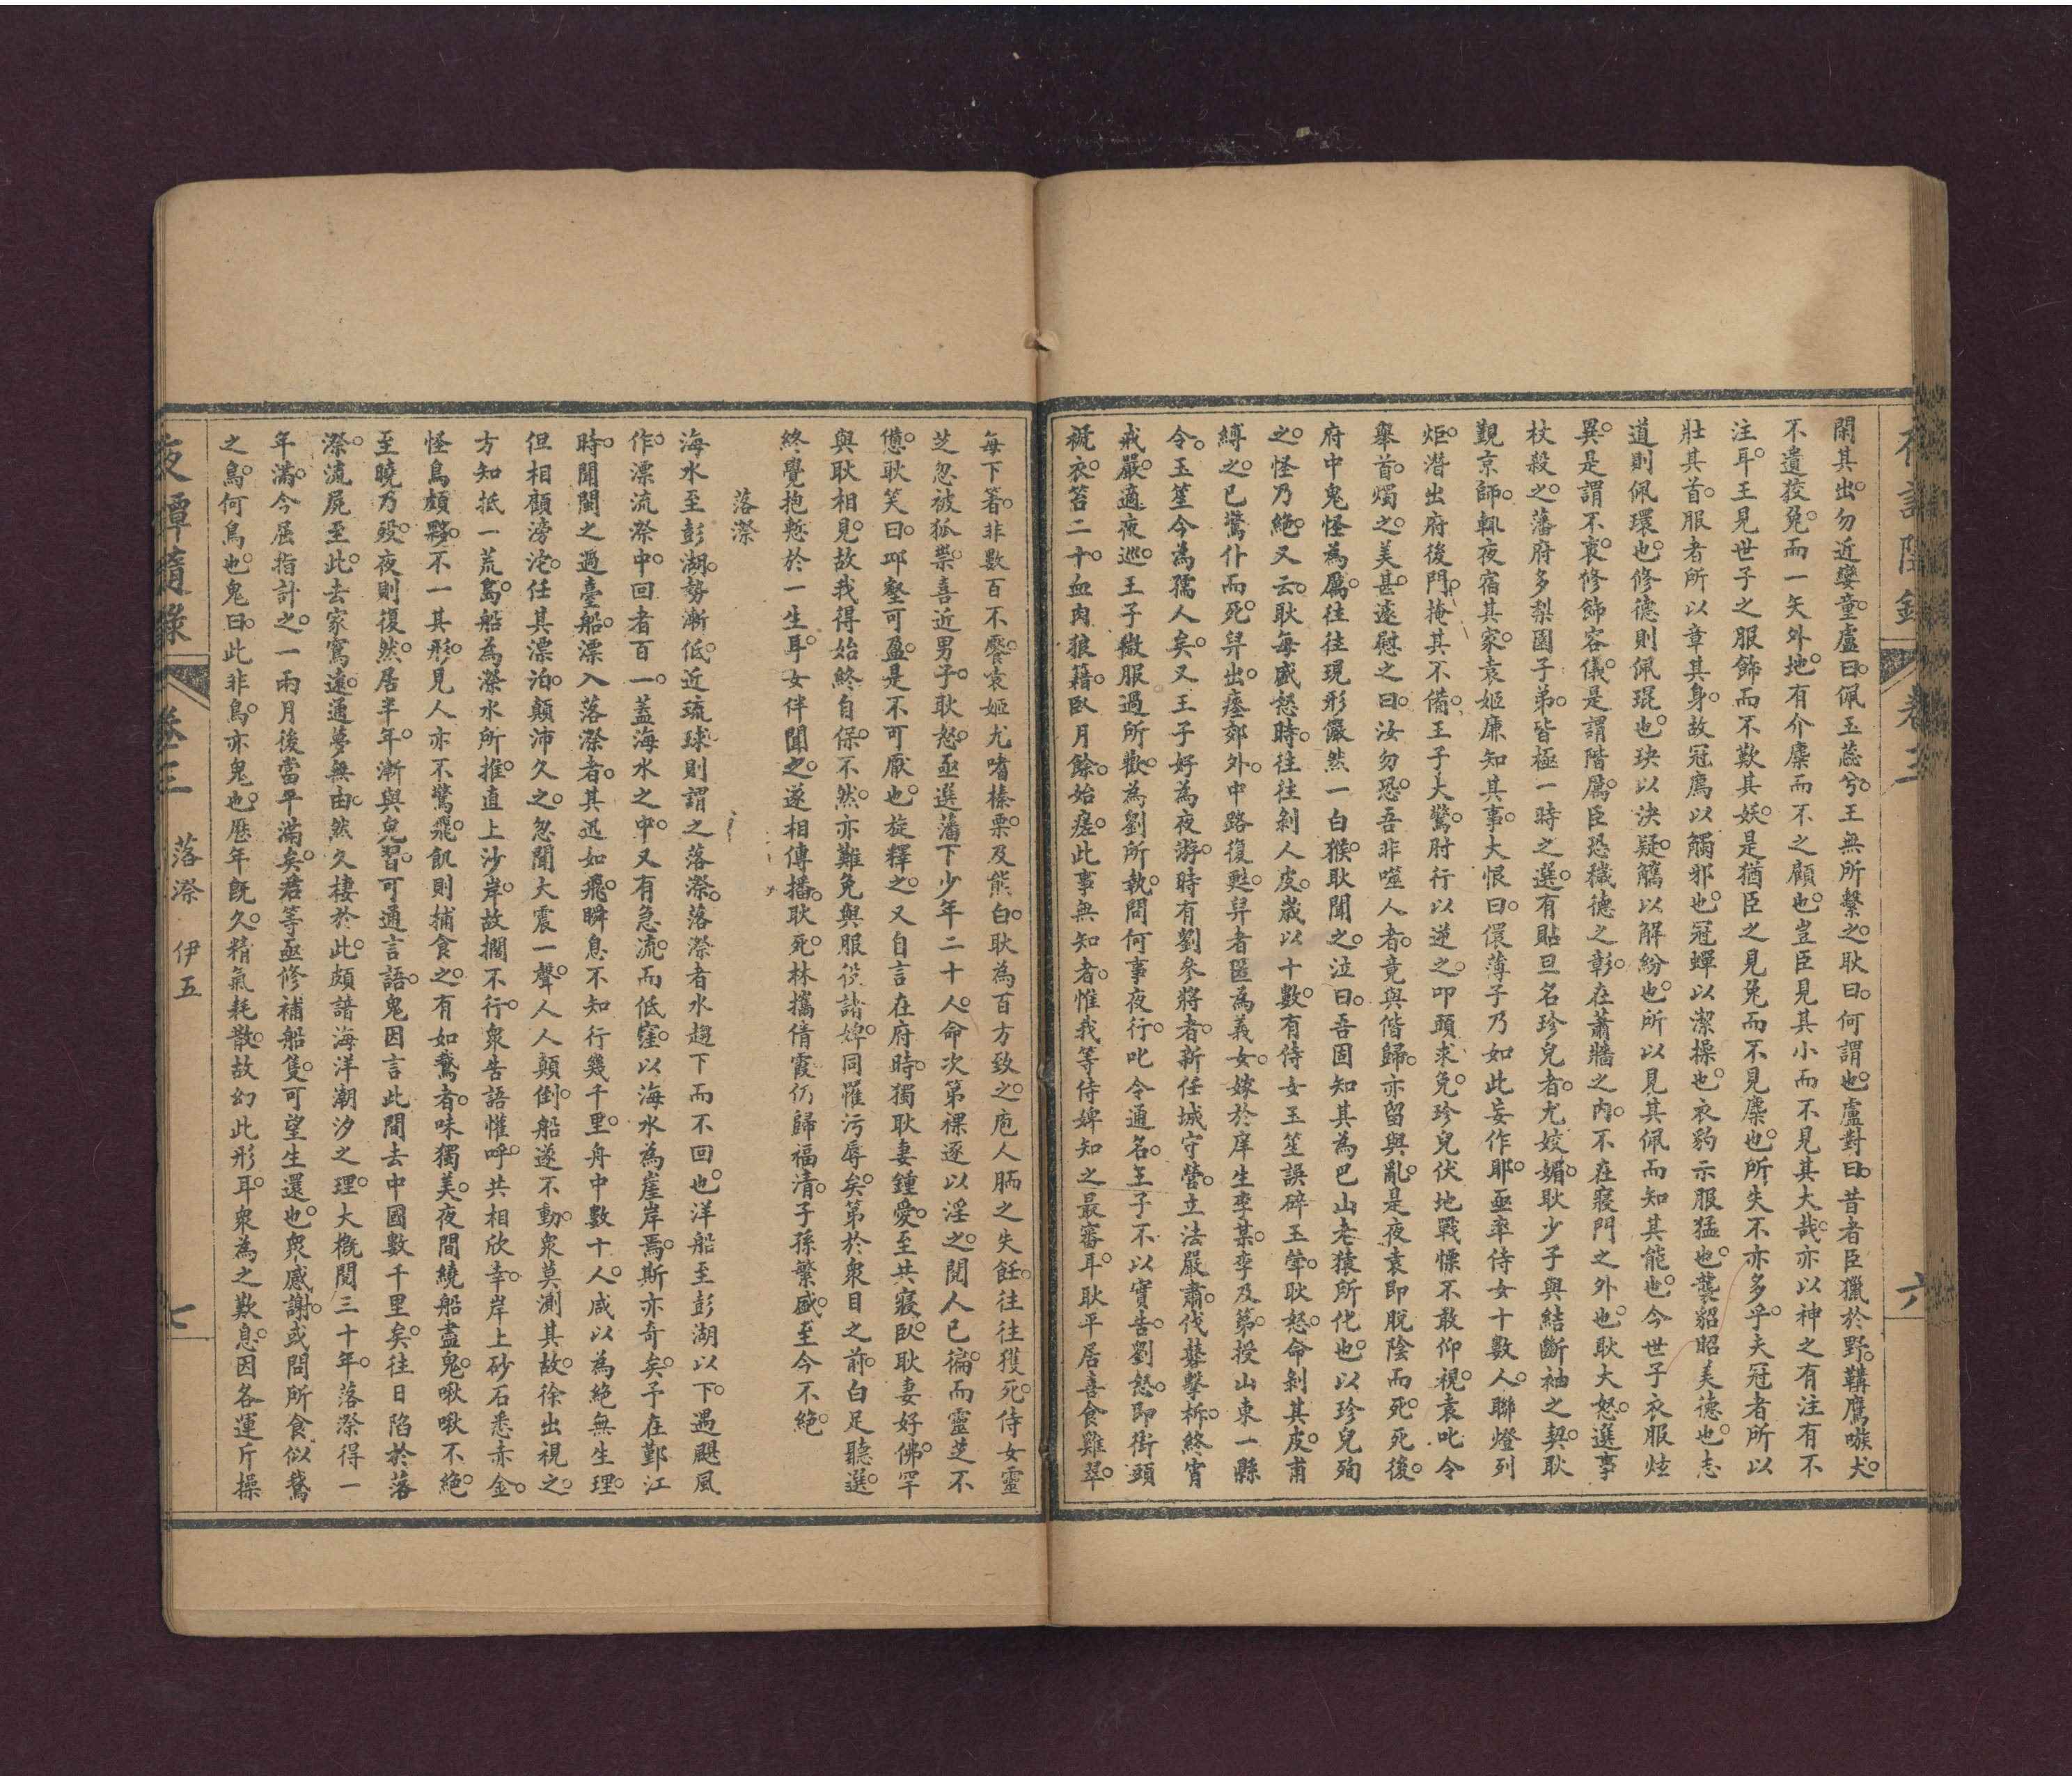 閑其出勿近孌童盧曰佩玉蕊兮王無所繫之耿曰何謂也盧對曰昔者臣獵於野鞲鷹嗾犬
不遺狡兔而一矢外地有介麋而不之顧也豈臣見其小而不見其大哉亦以神之有注有不
注耳王見世子之服飾而不歎其妖是猶臣之見兔而不見麋也所失不亦多乎夫冠者所以
壯其首服者所以章其身故冠廌以觸邪也冠蟬以潔操也衣豹示服猛也襲貂昭美德也志
道則佩環也修德則佩琨也玦以決疑觿以解紛也所以見其佩而知其能也今世子衣服炫
異是謂不衷修飾容儀是謂階厲臣恐穢德之彰在蕭牆之內不在寢門之外也耿大怒選事
杖殺之藩府多梨園子弟皆極一時之選有貼旦名珍兒者尤姣媚耿少子與結斷袖之契耿
覲京師輒夜宿其家袁姬廉知其事大恨曰儇薄子乃如此妄作耶亟率侍女十數人聯燈列
炬潛出府後門掩其不備王子大驚肘行以逆之叩頭求免珍兒伏地戰慄不敢仰視袁叱令
舉首燭之美甚遽慰之曰汝勿恐吾非噬人者竟與偕歸亦留與亂是夜袁即脫陰而死死後
府中鬼怪為厲往往現形儼然一白猴耿聞之泣曰吾固知其為巴山老猿所化也以珍兒殉
之怪乃絕又云耿每盛怒時往往剝人皮歲以十數有侍女玉笙誤碎玉斝耿怒命剝其皮甫
縛之已驚仆而死舁出瘞郊外中路復甦舁者匿為義女嫁於庠生李某李及第授山東一縣
令玉笙今為孺人矣又王子好為夜游時有劉參將者新任城守營立法嚴肅伐鼛擊柝終宵
戒嚴適夜巡王子微服過所歡為劉所執問何事夜行叱令通名王子不以實告劉怒即街頭
褫衣笞二十血肉狼籍臥月餘始瘥此事無知者惟我等侍婢知之最審耳耿平居喜食雞翠
每下箸非數百不饜袁姬尤嗜榛栗及熊白耿為百方致之庖人胹之失飪往往獲死侍女靈
芝忽被狐祟喜近男子耿怒亟選藩下少年二十人命次第裸逐以淫之閱人已徧而靈芝不
憊耿笑曰邛壑可盈是不可厭也旋釋之又自言在府時獨耿妻鍾愛至共寢臥耿妻好佛罕
與耿相見故我得始終自保不然亦難免與服役諸婢同罹污辱矣第於衆目之前白足聽選
終覺抱慙於一生耳女伴聞之遂相傳播耿死林攜倩霞仍歸福清子孫繁盛至今不絕
落漈
海水至彭湖勢漸低近琉球則謂之落漈落漈者水趨下而不回也洋船至彭湖以下遇颶風
作漂流漈中回者百一蓋海水之中又有急流而低窪以海水為崖岸焉斯亦奇矣予在鄞江
時聞閩之過臺船漂入落漈者其迅如飛瞬息不知行幾千里舟中數十人咸以為絕無生理
但相顧滂沱任其漂泊顛沛久之忽聞大震一聲人人顛倒船遂不動衆莫測其故徐出視之
方知抵一荒島船為漈水所推直上沙岸故擱不行衆告語懽呼共相欣幸岸上砂石悉赤金
怪鳥頗夥不一其形見人亦不驚飛飢則捕食之有如鵞者味獨美夜間繞船盡鬼啾啾不絕
至曉乃歿夜則復然居半年漸與鬼習可通言語鬼因言此間去中國數千里矣往日陷於落
漈流屍至此去家寫遠通夢無由然久棲於此頗諳海洋潮汐之理大槪閱三十年落漈得一
年滿今屈指計之一兩月後當平滿矣君等亟修補船隻可望生還也衆感謝或問所食似鵞
之鳥何鳥也鬼曰此非鳥亦鬼也歷年旣久精氣耗散故幻此形耳衆為之歎息因各運斤操
夜譚隨錄 卷三 落漈 伊五 七